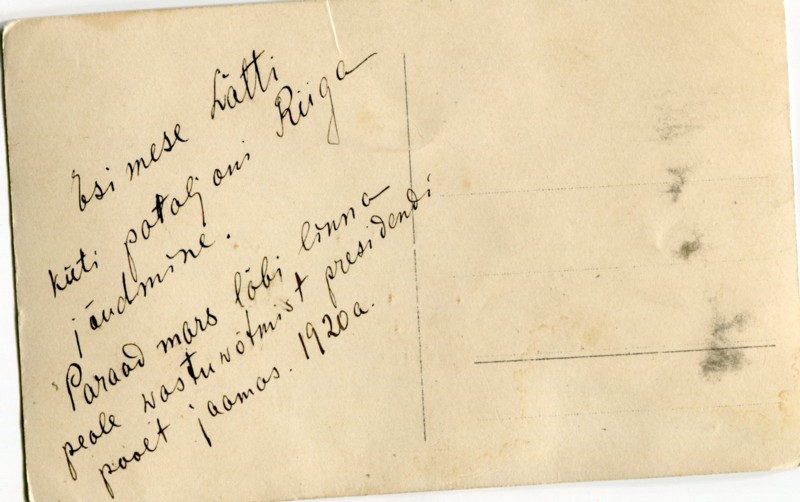 Esimese Lätti
küti pataljoni Riiga
jäudmine.
Paraad mars läbi linna
peale wastuwõtmist presidendi
poolt jaamas. 1920a.